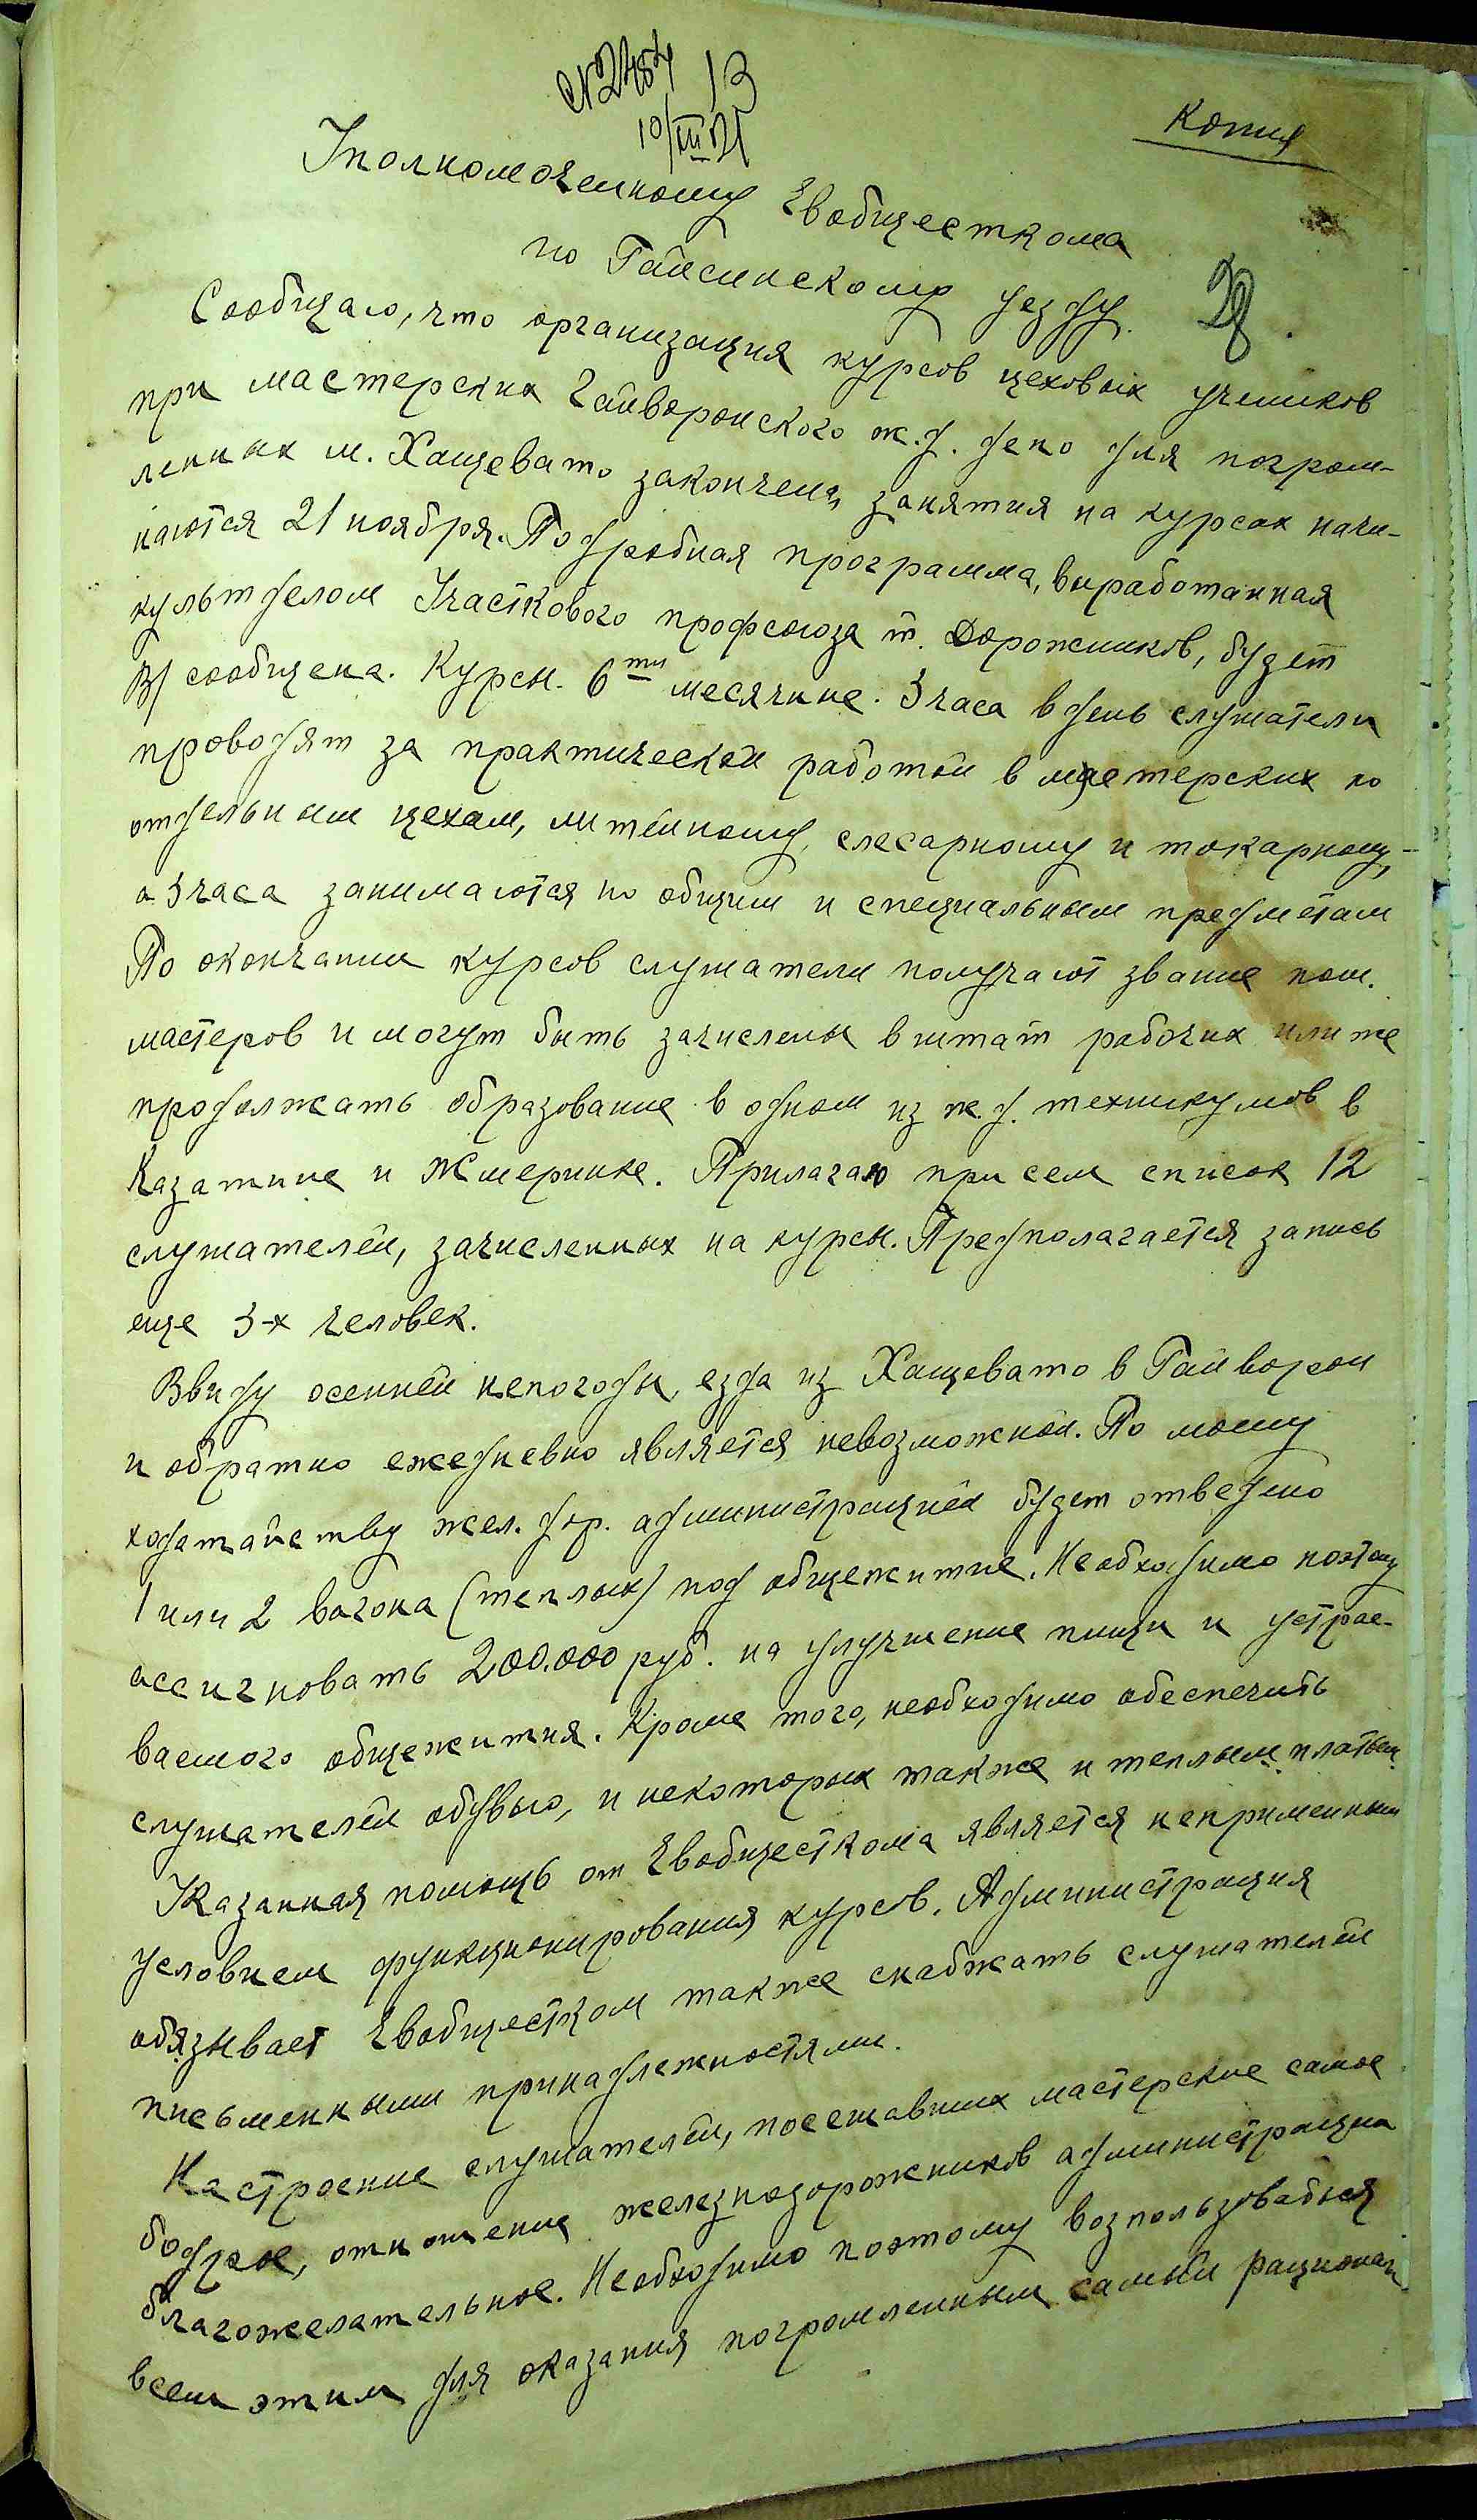 №2484 13
10/III 21
Копия
Уполномоченному Евобщесткома
по Гайсинскому уезду.
28.
Сообщаю, что организация курсов цеховых учеников
при мастерских Гайворонского ж.д. депо для погром-
ленных м. Хащевато закончена, занятия на курсах начи-
наются 21 ноября. Подробная программа, выработанная
культделом Участкового профсоюза т. Дорожников, будет
сообщена. Курсы 6ти месячные. 3 часа в день слушатели
проводят за практической работой в мастерских по
отдельным цехам, литейному, слесарному и токарному,-
а 3 часа занимаются по общим и специальным предметам
По окончании курсов слушатели получают звание пом.
мастеров и могут быть зачислены в штат рабочих или же
продолжать образование в одном из ж.д. техникумов в
Казатине и Жмеринке. Прилагаю при сем список 12
слушателей, зачисленных на курсы. Предполагается запись
еще 3-х человек.
Ввиду осенней непогоды, езда из Хащевато в Гайворон
и обратно ежедневно является невозможной. По моему
ходатайству жел. дор. администрацией будет отведено
1 или 2 вагона (теплых) под общежитие. Необходимо поэтому
ассигновать 200.000 руб. на улучшение пищи и устраи-
ваемого общежития. Кроме того, необходимо обеспечить
слушателей обувью, и некоторых также и теплым платьем.
Указанная помощь от Евобщесткома является непременным
условием функционирования курсов. Администрация
обязывает Евобщестком также снабжать слушателей
письменными принадлежностями.
Настроение слушателей, посещавших мастерские самое
бодрое, отношение железнодорожников администрации
благожелательное. Необходимо поэтому возпользоваться
всем этим для оказания погромленным самый рационал.